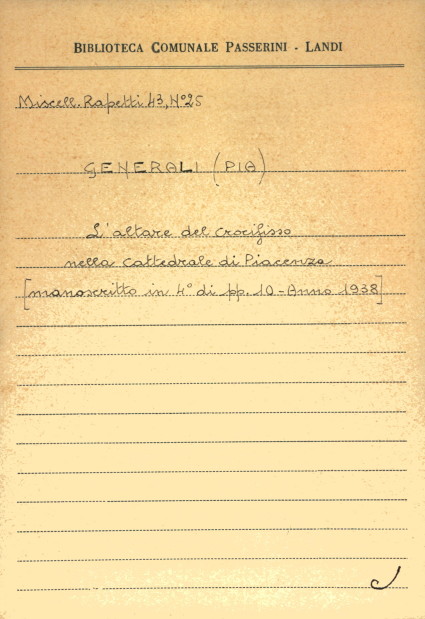 BIBLIOTECA COMUNALE PASSERINI - LANDI
Miscell. Rapetti 43, N° 25
GENERALI (PIA)
L'altare del Crocifisso
nella Cattedrale di Piacenza
[manoscritto in 4° di pp. 10 - Anno 1938]